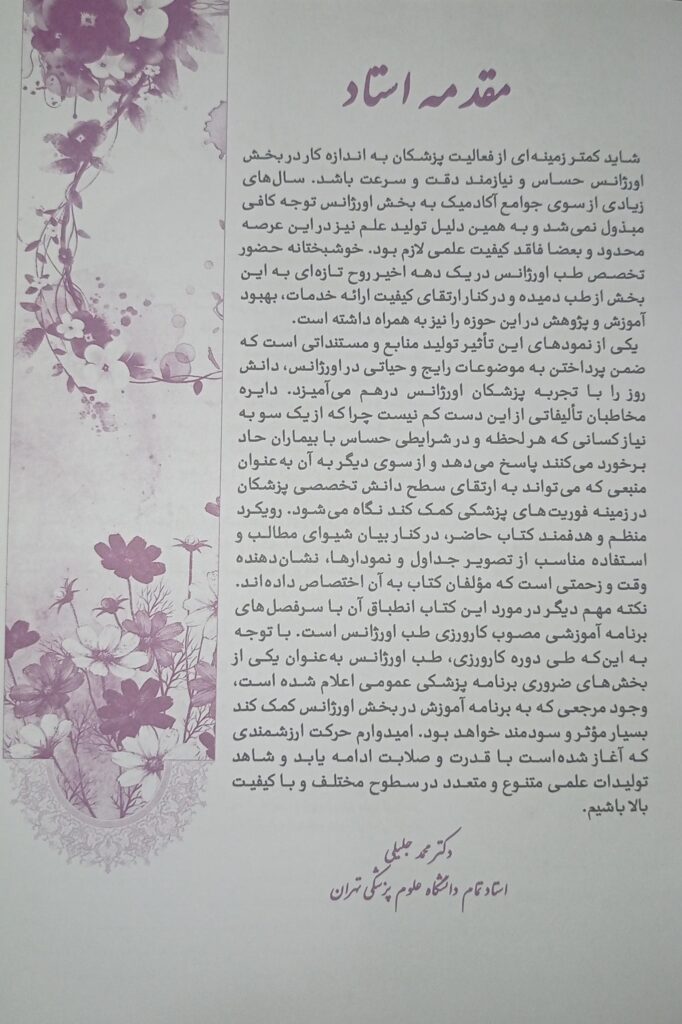 مقدمه استاد
شاید کمتر زمینه‌ای از فعالیت پزشکان به اندازه کار در بخش
اورژانس حساس و نیازمند دقت و سرعت باشد. سال‌های
زیادی از سوی جوامع آکادمیک به بخش اورژانس توجه کافی
مبذول نمی‌شد و به همین دلیل تولید علم نیز در این عرصه
محدود و بعضا فاقد کیفیت علمی لازم بود. خوشبختانه حضور
تخصص طب اورژانس در یک دهه اخیر روح تازه‌ای به این
بخش از طب دمیده و در کنار ارتقای کیفیت ارائه خدمات، بهبود
آموزش و پژوهش در این حوزه را نیز به همراه داشته است.
یکی از نمودهای این تأثیر تولید منابع و مستنداتی است که
ضمن پرداختن به موضوعات رایج و حیاتی در اورژانس، دانش
روز را با تجربه پزشکان اورژانس درهم می‌آمیزد. دایره
مخاطبان تألیفاتی از این دست کم نیست چرا که از یک سو به
نیاز کسانی که هر لحظه و در شرایطی حساس با بیماران حاد
برخورد می‌کنند پاسخ می‌دهد و از سوی دیگر به آن به‌عنوان
منبعی که می‌تواند به ارتقای سطح دانش تخصصی پزشکان
در زمینه فوریت‌های پزشکی کمک کند نگاه می‌شود. رویکرد
منظم و هدفمند کتاب حاضر، در کنار بیان شیوای مطالب و
استفاده مناسب از تصویر جداول و نمودارها، نشان‌دهنده
وقت و زحمتی است که مؤلفان کتاب به آن اختصاص داده‌اند.
نکته مهم دیگر در مورد این کتاب انطباق آن با سرفصل‌های
برنامه آموزشی مصوب کارورزی طب اورژانس است. با توجه
به این‌که طی دوره کارورزی، طب اورژانس به‌عنوان یکی از
بخش‌های ضروری برنامه پزشکی عمومی اعلام شده است،
وجود مرجعی که به برنامه آموزش در بخش اورژانس کمک کند
بسیار مؤثر و سودمند خواهد بود. امیدوارم حرکت ارزشمندی
که آغاز شده‌است با قدرت و صلابت ادامه یابد و شاهد
تولیدات علمی متنوع و متعدد در سطوح مختلف و با کیفیت
بالا باشیم.
دکتر محمد جلیلی
استاد تمام دانشگاه علوم پزشکی تهران